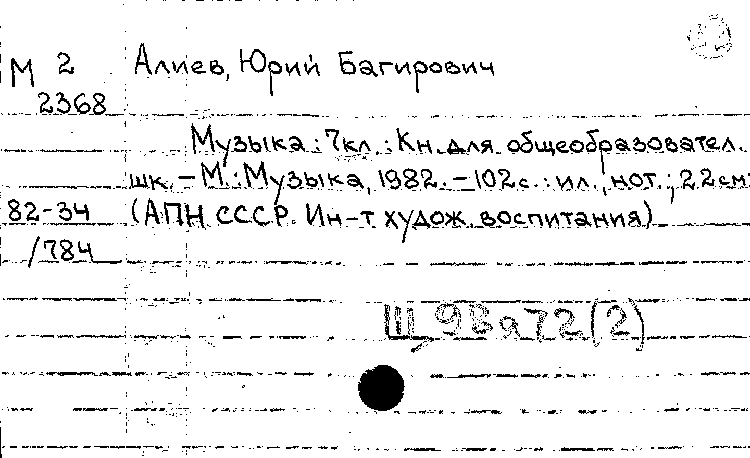 М 2 Алиев, Юрий Багирович
2368
Музыка : 7кл. : Кн. для общеобразоват​ел.
шк. – М. : Музыка, 1982. – 102 с. : ил., нот.; 22см.
82-34 (АПН СССР. Ин-т худож. воспитания)
/784
Щ 93я72(2)